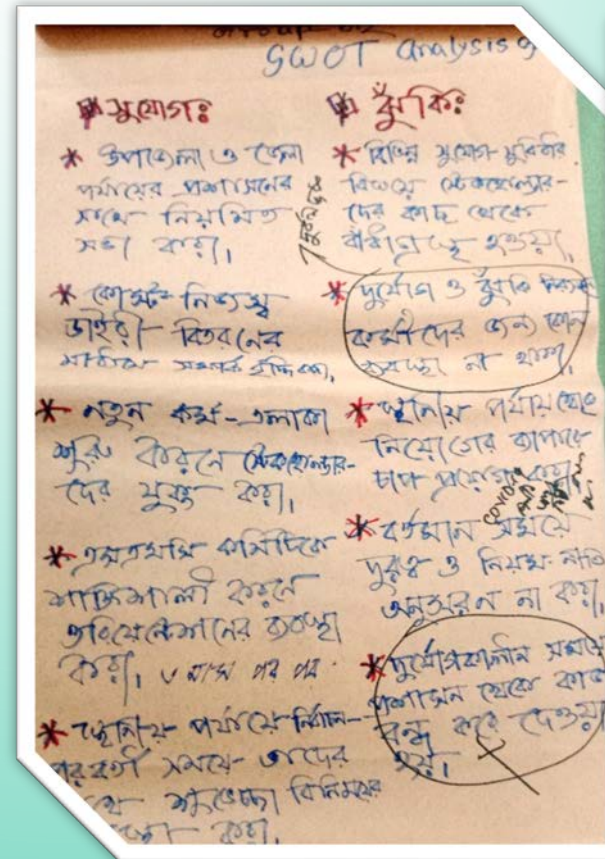 SWOT analysis
সুযোগঃ
* উপজেলা ও জেলা
পর্যায়ের প্রশাসনের
সাথে নিয়মিত
সভা করা।
* কোস্ট নিজস্ব
ডাইরী বিতরনের
মাধ্যমে সম্পর্ক বৃদ্ধি করা,
* নতুন কর্ম-এলাকা
শুরু করনে স্টেকহোল্ডার-
দের যুক্ত করা।
* এমএমসি কমিটিকে
শক্তিশালী করনে
ওরিয়েন্টেশানের ব্যবস্থা
করা, ৬ মাস পর পর
* স্থানীয় পর্যায়ে নির্বাচন-
পরবর্তী সময়ে তাদের
সাথে শুভেচ্ছা বিনিময়ের
করা,
ঝুঁকিঃ
* বিভিন্ন সুযোগ সুবিধার
বিষয়ে স্টেকহোল্ডার-
দের কাছ থেকে
বাঁধাগ্রস্থ হওয়া,
* দুর্যোগ ও ঝুঁকি
কর্মীদের জন্য কোন
ব্যবস্থা না থাকা,
* স্থানীয় পর্যায় থেকে
নিয়োগের ব্যাপারে
চাপ প্রয়োগ করা
* বর্তমান সময়ে
দুরত্ব ও নিয়ম-নীতি
অনুসরন না করা,
* দুর্যোগকালীন সময়ে
প্রশাসন থেকে কাজ
বন্ধ করে দেওয়া
হয়।